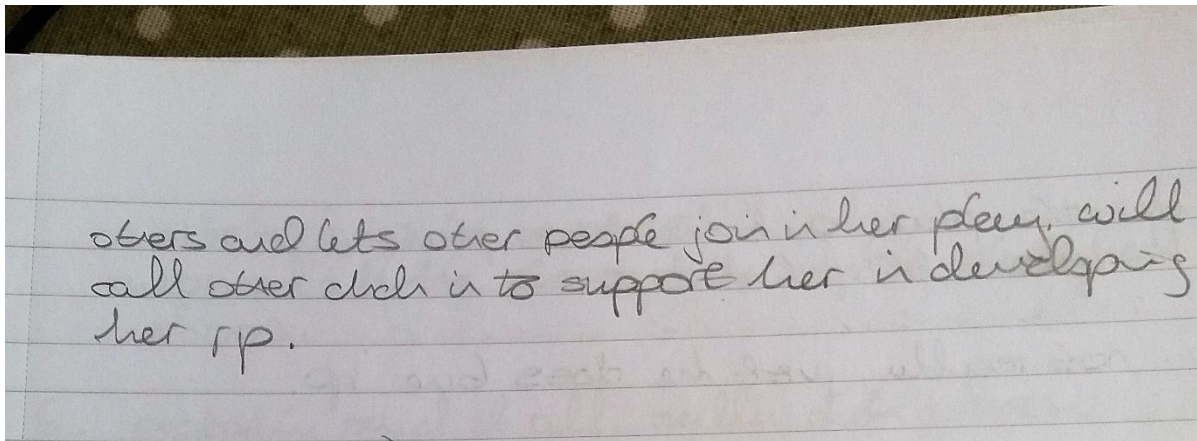 others and lets other people join in her play. will
call other chdn in to support her in developing
her rp.